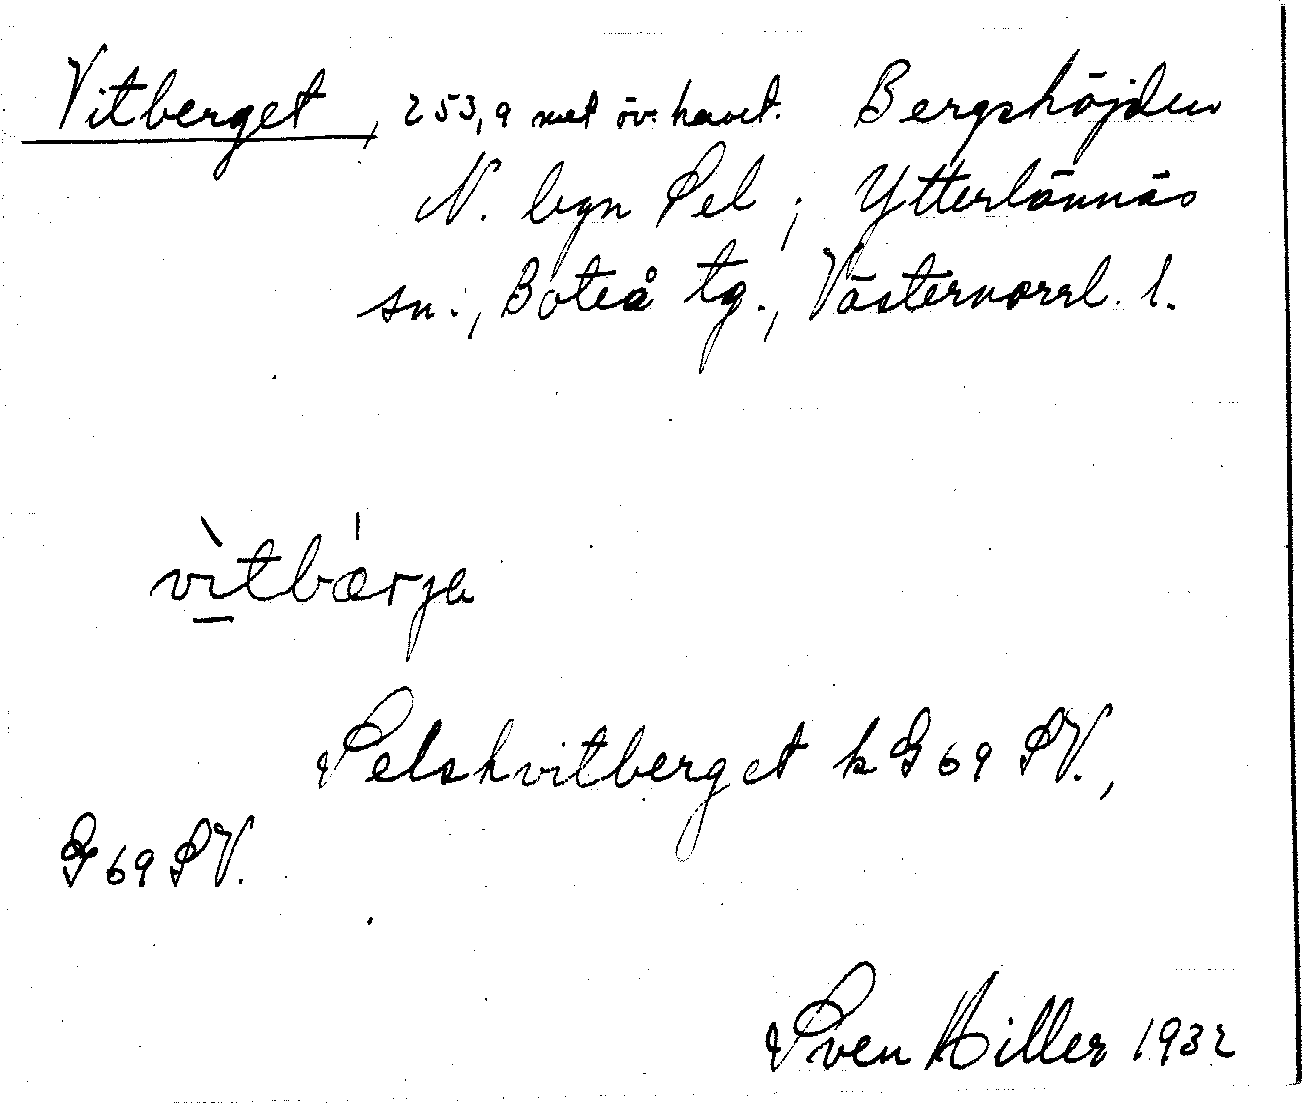 Vitberget, 253,9 met öv. havet. Bergshöjden
N. byn Sel; Ytterlännäs
sn., Boteå tg., Västernorrl. l.
vìtbærja
Selskvitberget k G 69 SV.,
G 69 SV.
Sven Hiller 1932